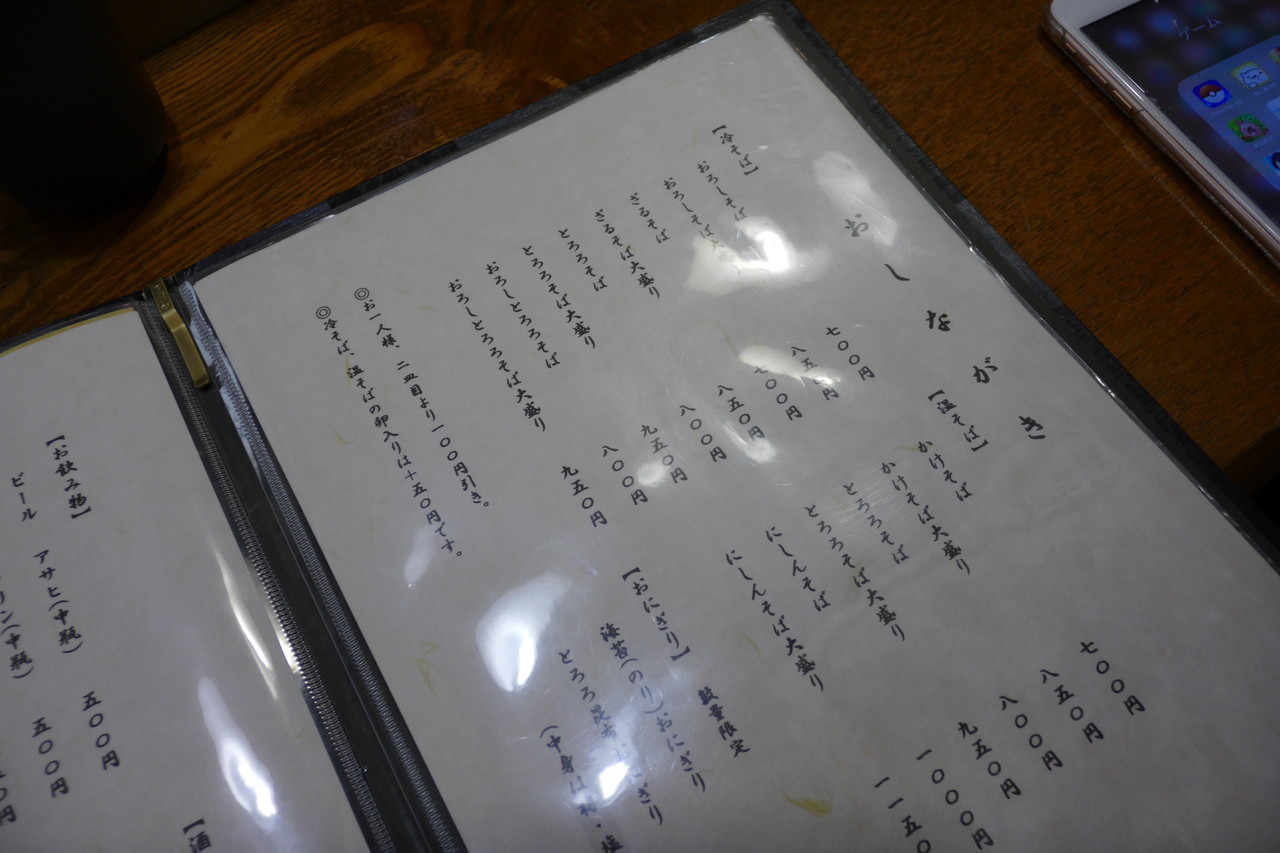 おしながき
【冷そば】
おろしそば 七〇〇円
おろしそば大盛り 八五〇円
ざるそば 七〇〇円
ざるそば大盛り 八五〇円
とろろそば 八〇〇円
とろろそば大盛り 九五〇円
おろしとろろそば 八〇〇円
おろしとろろそば大盛り 九五〇円
◎お一人様、二皿目より一〇〇円引き。
◎冷そば、温そばの卵入りは十五〇円です。
【温そば】
かけそば 七〇〇円
かけそば大盛り 八五〇円
とろろそば 八〇〇円
とろろそば大盛り 九五〇円
にしんそば 一〇〇〇円
にしんそば大盛り 一一五〇
【おにぎり】 数量限定
海苔(のり)おにぎり
とろろ昆布おにぎり
(中身は梅・塩
【お飲み物】
ビール アサヒ(中瓶) 五〇〇円
リン(中瓶) 五〇〇円
〇円
【酒
ゲーム